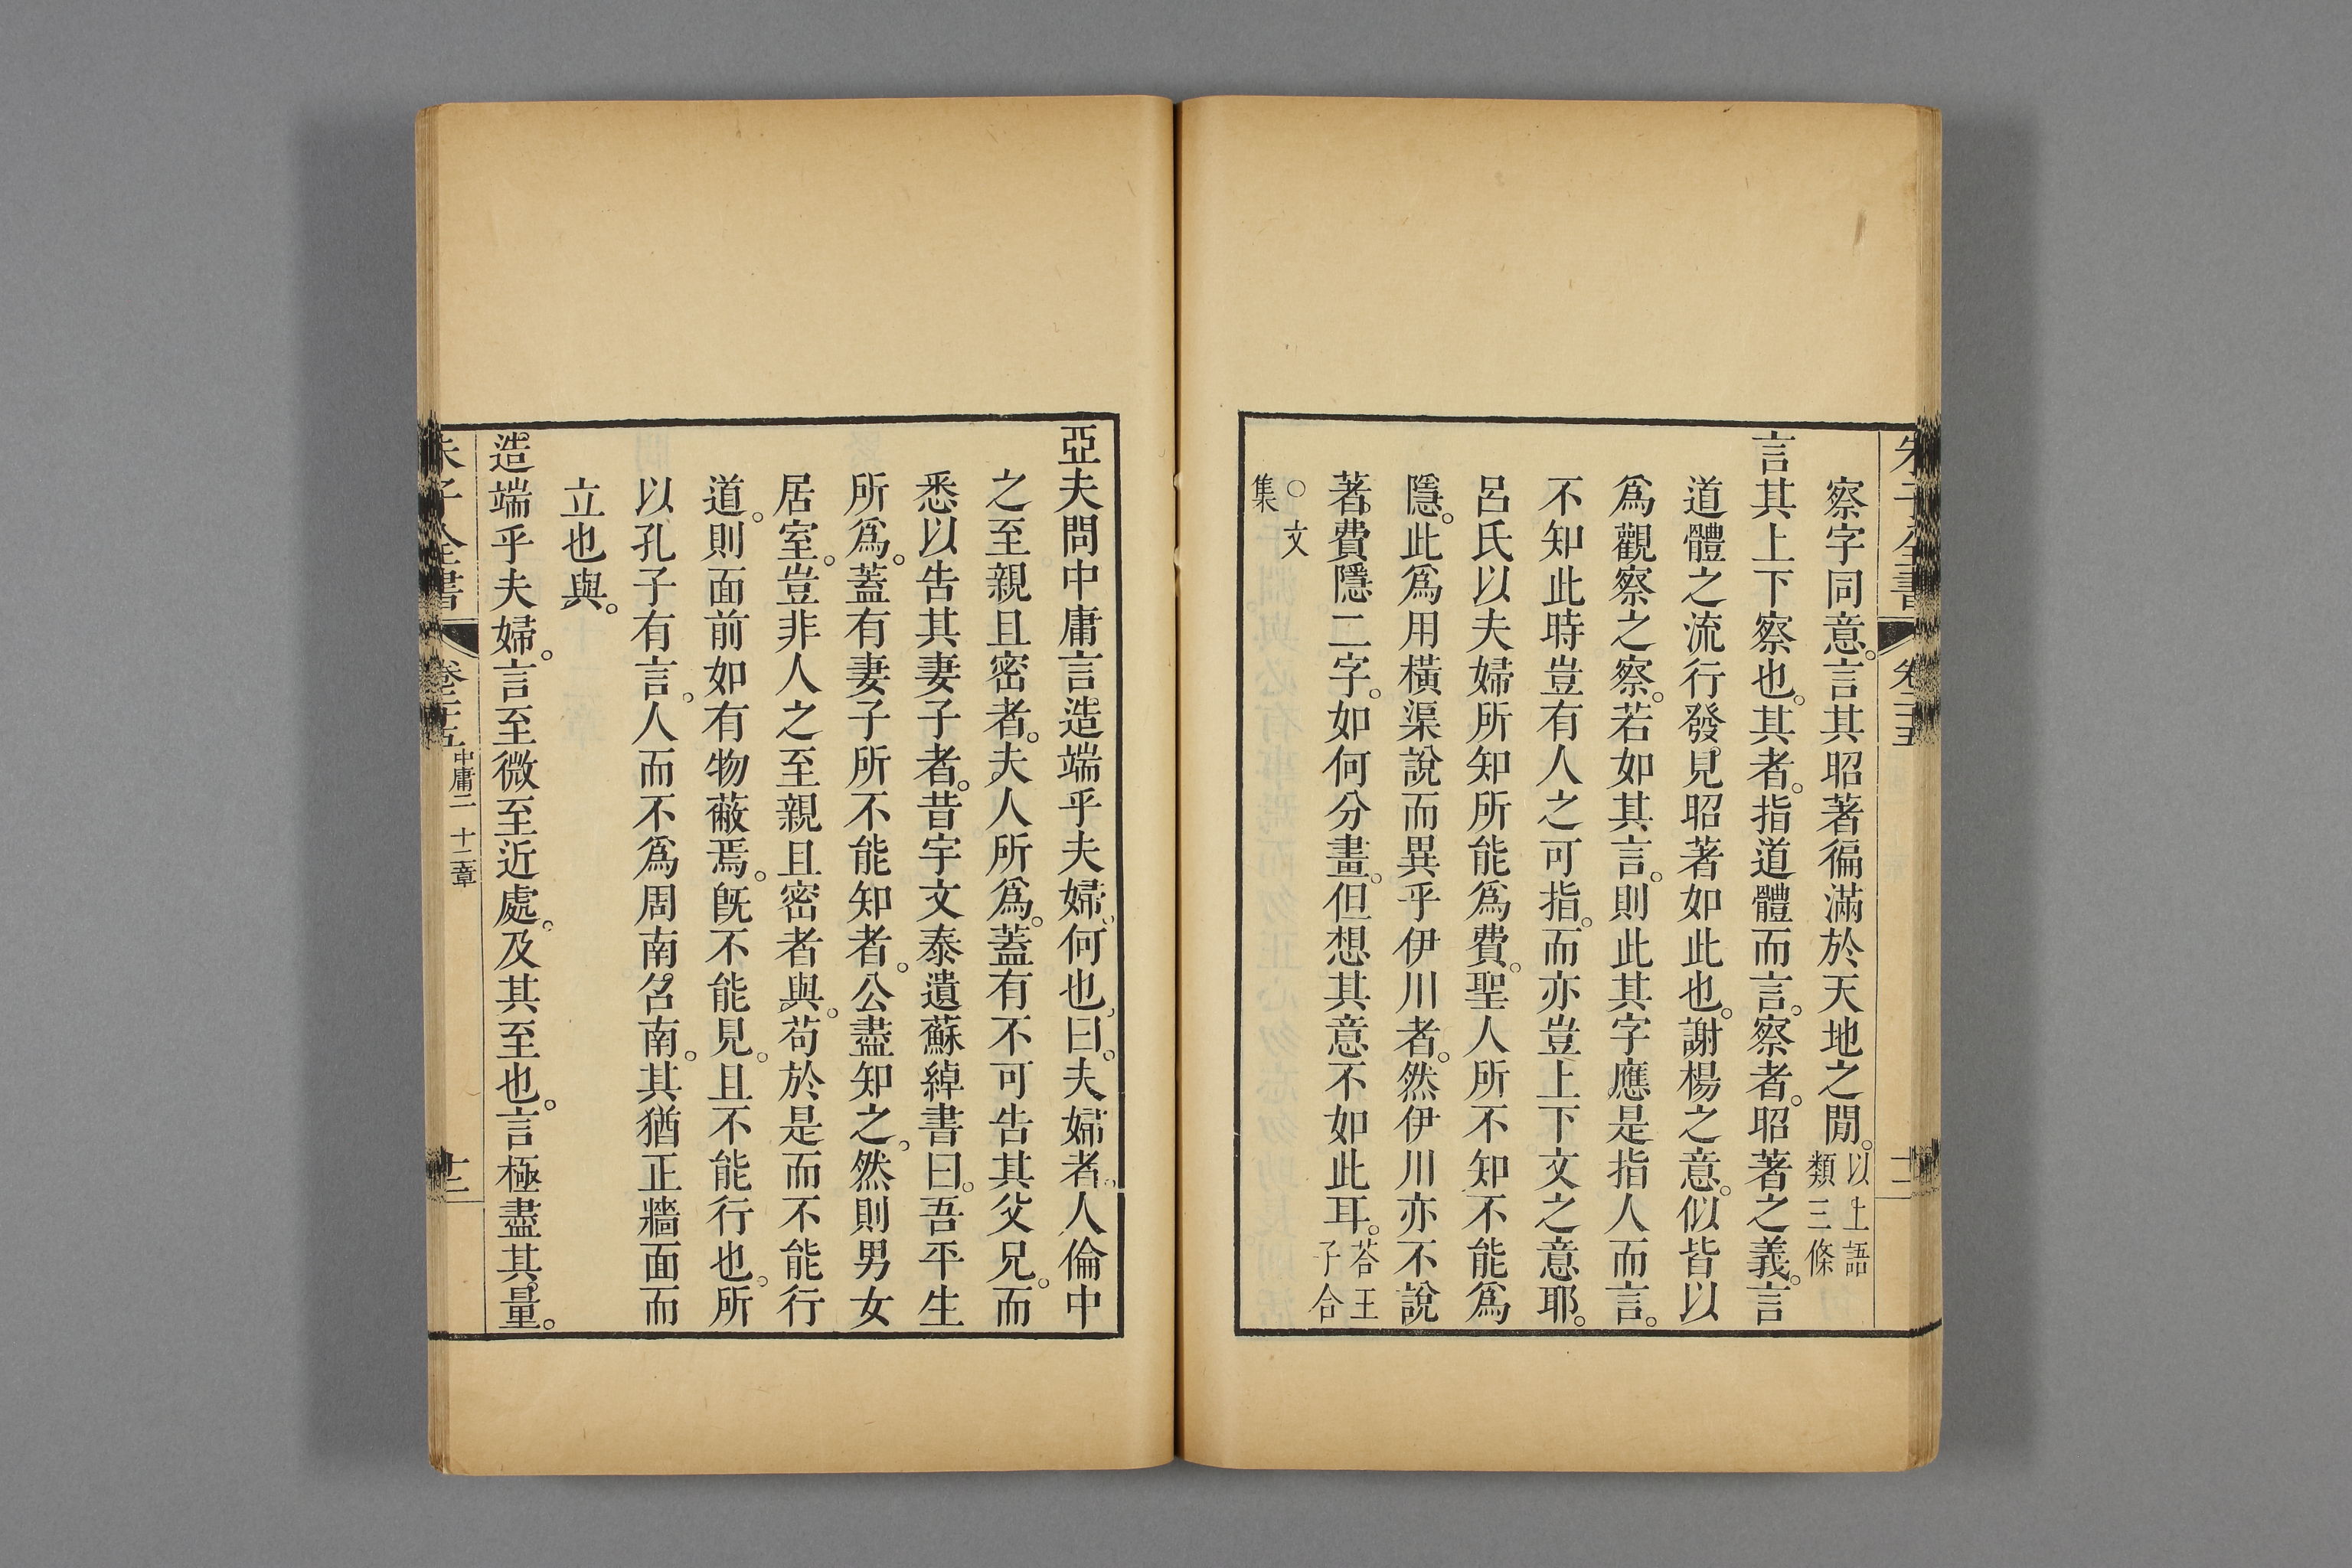 朱子全書 卷二十五 十二
察字同意。言其昭著徧滿於天地之閒。以上語類三條
言其上下察也。其者。指道體而言。察者。昭著之義。言
道體之流行發見昭著如此也。謝楊之意。似皆以
爲觀察之察。若如其言。則此其字應是指人而言。
不知此時豈有人之可指。而亦豈上下文之意耶。
呂氏以夫婦所知所能爲費。聖人所不知不能爲
隱。此爲用橫渠說而異乎伊川者。然伊川亦不說
著。費隱二字。如何分畫。但想其意不如此耳。荅王子合
○文集
亞夫問中庸言造端乎夫婦、何也、曰。夫婦者。人倫中
之至親且密者。夫人所爲。蓋有不可告其父兄。而
悉以告其妻子者。昔宇文泰遺蘇綽書曰。吾平生
所爲。蓋有妻子所不能知者。公盡知之。然則男女
居室。豈非人之至親且密者與。苟於是而不能行
道。則面前如有物蔽焉。旣不能見。且不能行也。所
以孔子有言。人而不爲周南召南。其猶正牆面而
立也與。
造端乎夫婦。言至微至近處。及其至也。言極盡其量。
朱子全書 卷二十五 中庸二 十二章 十二